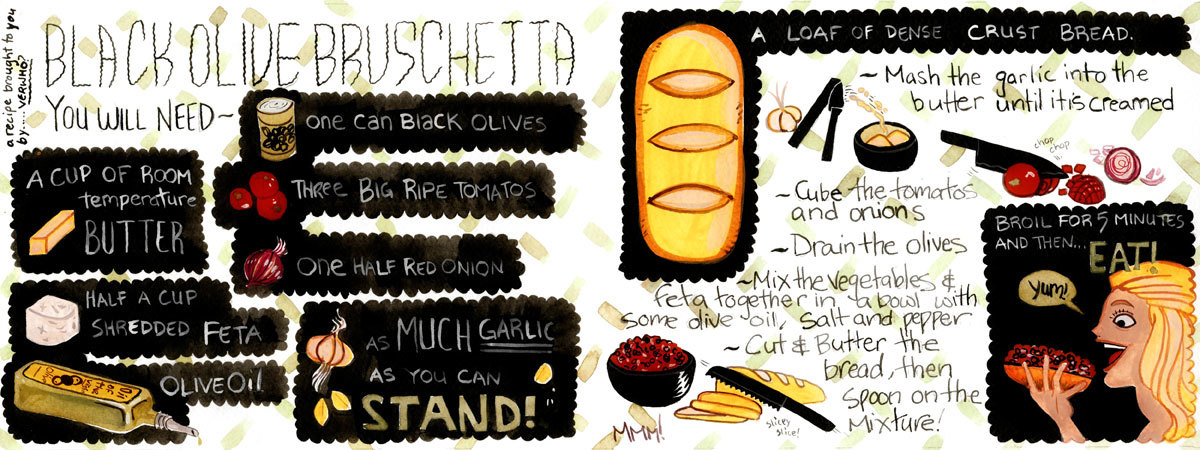 a recipe brought to you
by.... VERWHO
BLACK OLIVE BRUSCHETTA
YOU WILL NEED~
one can Black OLIVES
A CUP OF ROOM
temperature
BUTTER
THREE BIG RIPE TOMATOS
One HALF RED ONION
HALF A CUP
SHREDDED FETA
OLIVE OIL
AS MUCH GARLIC
AS YOU CAN
STAND!
A LOAF OF DENSE CRUST BREAD.
~Mash the garlic into the
butter until it is creamed
chop
chop
~Cube the tomatos
and onions
~Drain the olives
~Mix the vegetables &
feta together in a bowl with
some olive oil, salt and pepper
~Cut & Butter the
bread, then
spoon on the
Mixture!
MMM!
slicey
slice!
BROIL FOR 5 MINUTES
AND THEN... EAT!
Yum!